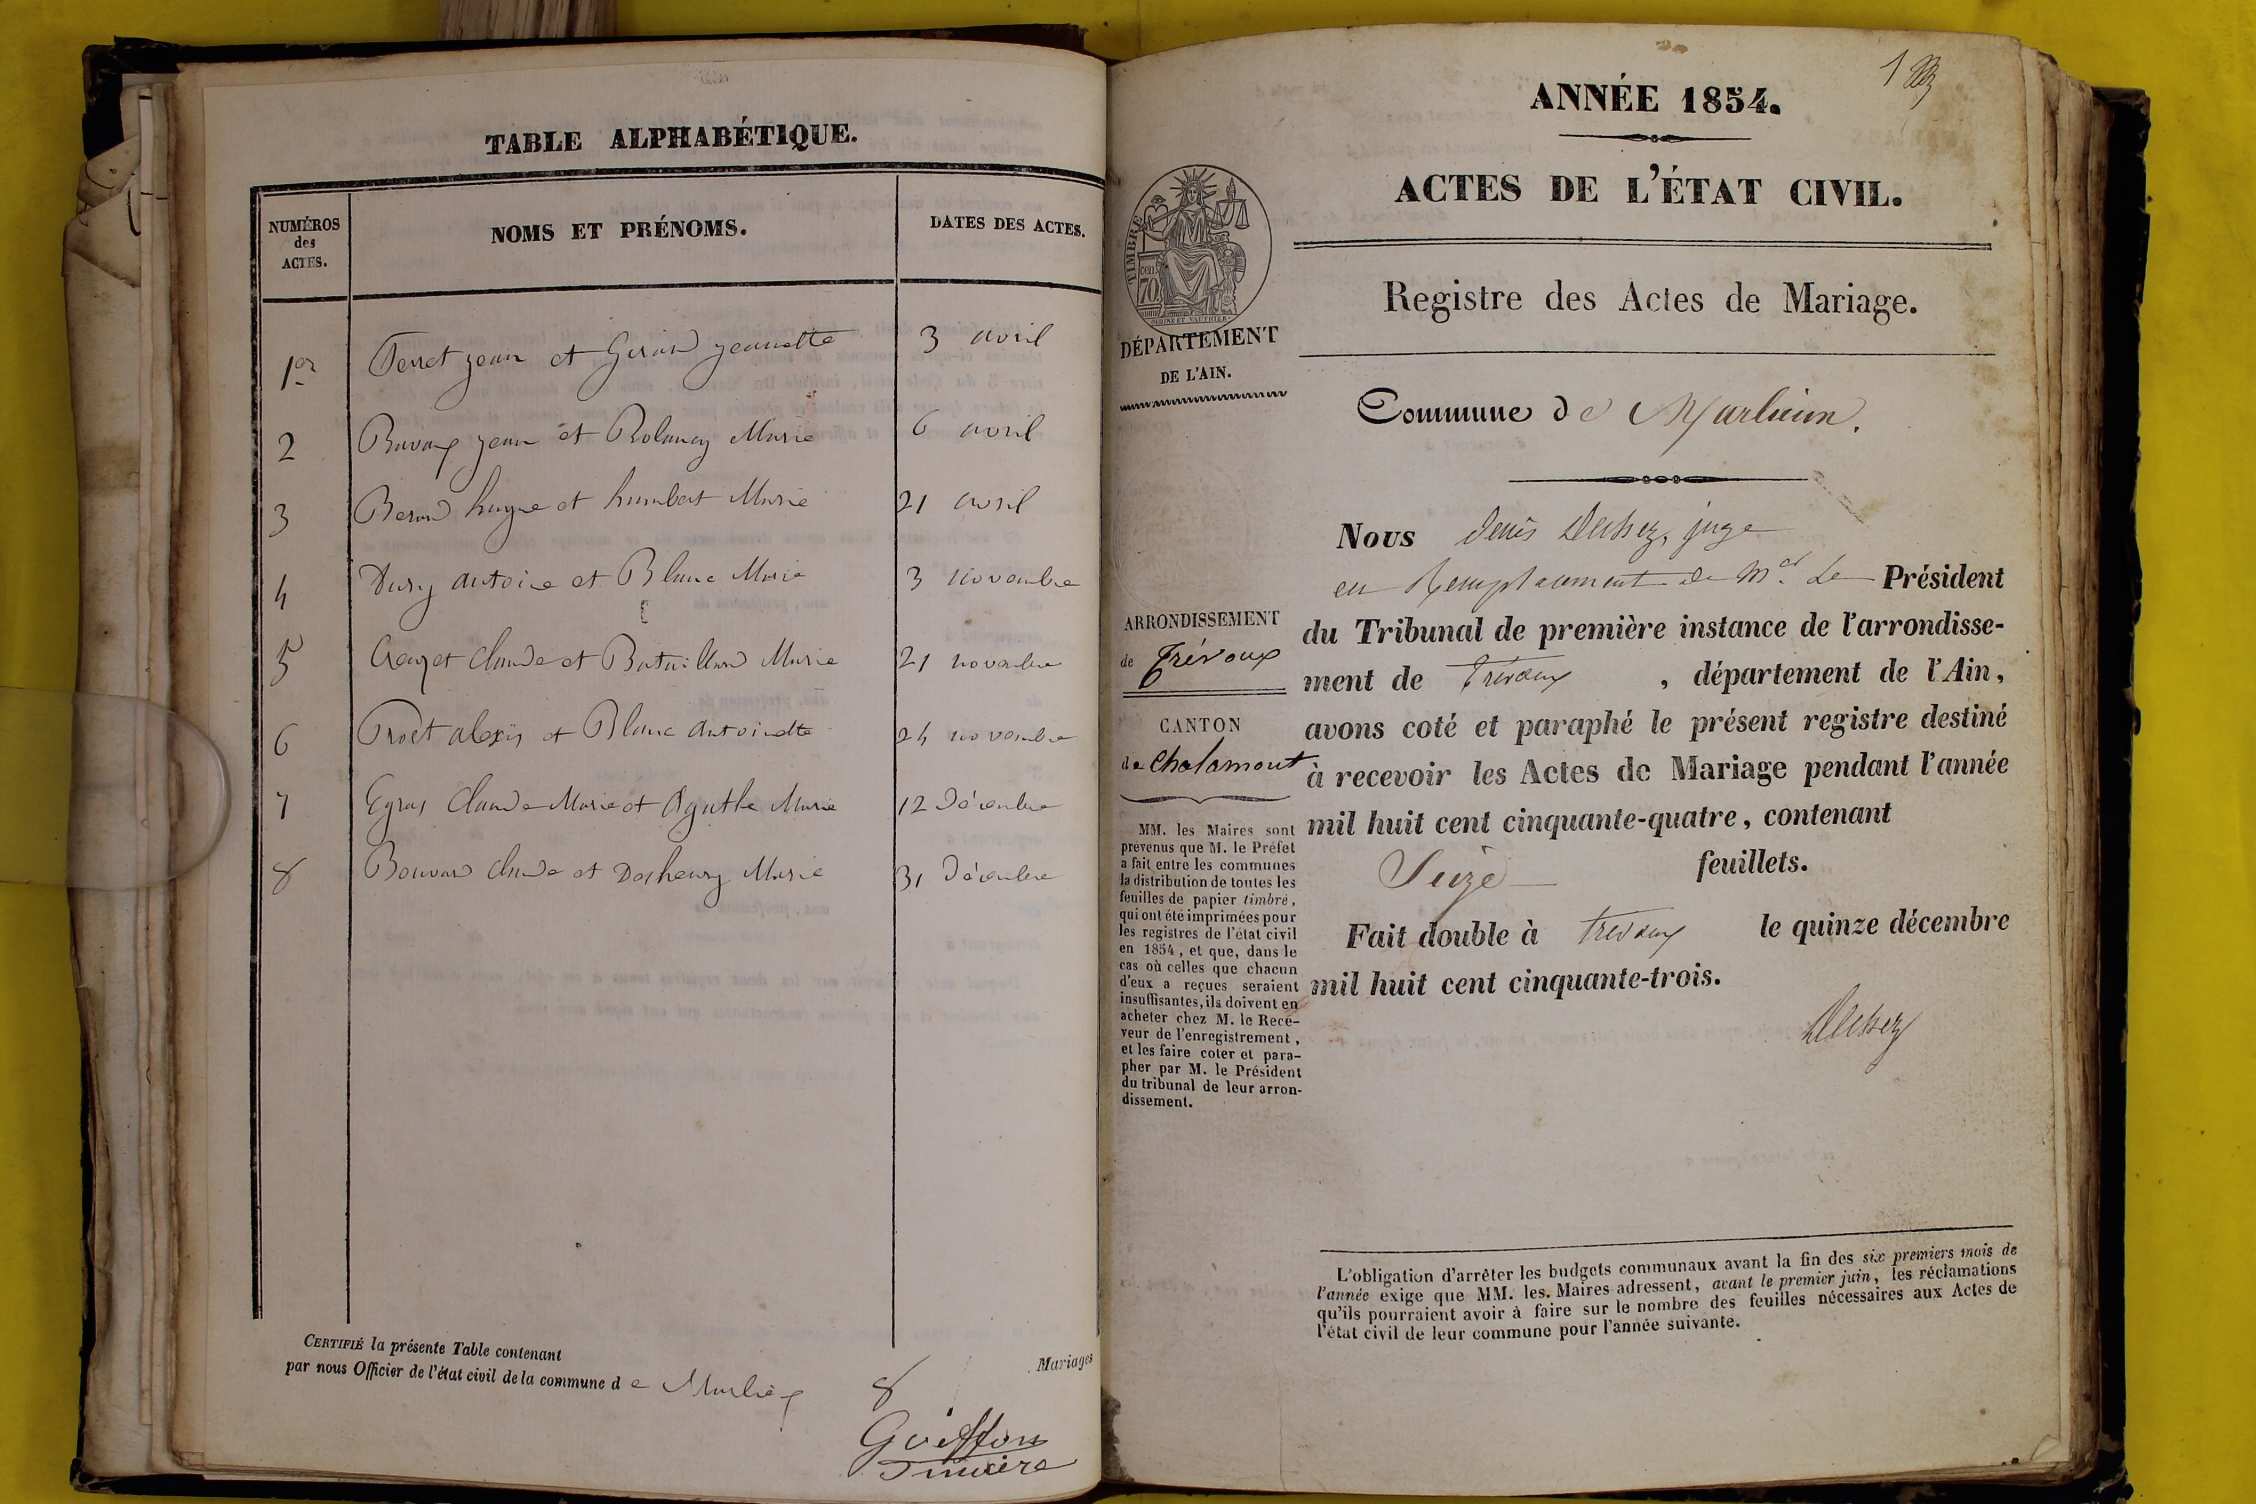 TABLE ALPHABÉTIQUE.
NUMÉROS
des
ACTES.
NOMS ET PRÉNOMS.
DATES DES ACTES.
1er Ferret jean et Girard jeannette 3 avril
2 jean et Marie 6 avril
3 Berard hugue et humbert Marie 21 avril
4 Dury antoine et Blanc Marie 3 novembre
5 Crozet claude et Bataillard Marie 21 novembre
6 Prost alexis et Blanc antoinette 24 novembre
7 Egras Claude Marie et Agathe Marie 12 Décembre
8 Bouvard claude et Marie 31 Décembre
CERTIFIÉ la présente Table contenant 8 Mariages
par nous Officier de l'état civil de la commune de Marlieux
Goiffon
1
ANNÉE 1854.
ACTES DE L'ÉTAT CIVIL.
Registre des Actes de Mariage.
TIMBRE
70
cen
DÉPARTEMENT
DE L'AIN.
ARRONDISSEMENT
de Trévoux
CANTON
de Chalamont
MM. les Maires sont
prévenus que M. le Préfet
a fait entre les communes
la distribution de toutes les
feuilles de papier timbré,
qui ont été imprimées pour
les registres de l'état civil
en 1854, et que, dans le
cas où celles que chacun
d'eux a reçues seraient
insuffisantes, ils doivent en
acheter chez M. le Rece-
veur de l'enregistrement,
et les faire coter et para-
pher par M. le Président
du tribunal de leur arron-
dissement.
Commune de Marlieux.
Nous Denis juge
en Remplacement de Mr. Le Président
du Tribunal de première instance de l'arrondisse-
ment de Trévoux, département de l'Ain,
avons coté et paraphé le présent registre destiné
à recevoir les Actes de Mariage pendant l'année
mil huit cent cinquante-quatre, contenant
Seize feuillets.
Fait double à Trévoux le quinze décembre
mil huit cent cinquante-trois.
L'obligation d'arrêter les budgets communaux avant la fin des six premiers mois de
l'année exige que MM. les. Maires adressent, avant le premier juin, les réclamations
qu'ils pourraient avoir à faire sur le nombre des feuilles nécessaires aux Actes de
l'état civil de leur commune pour l'année suivante.